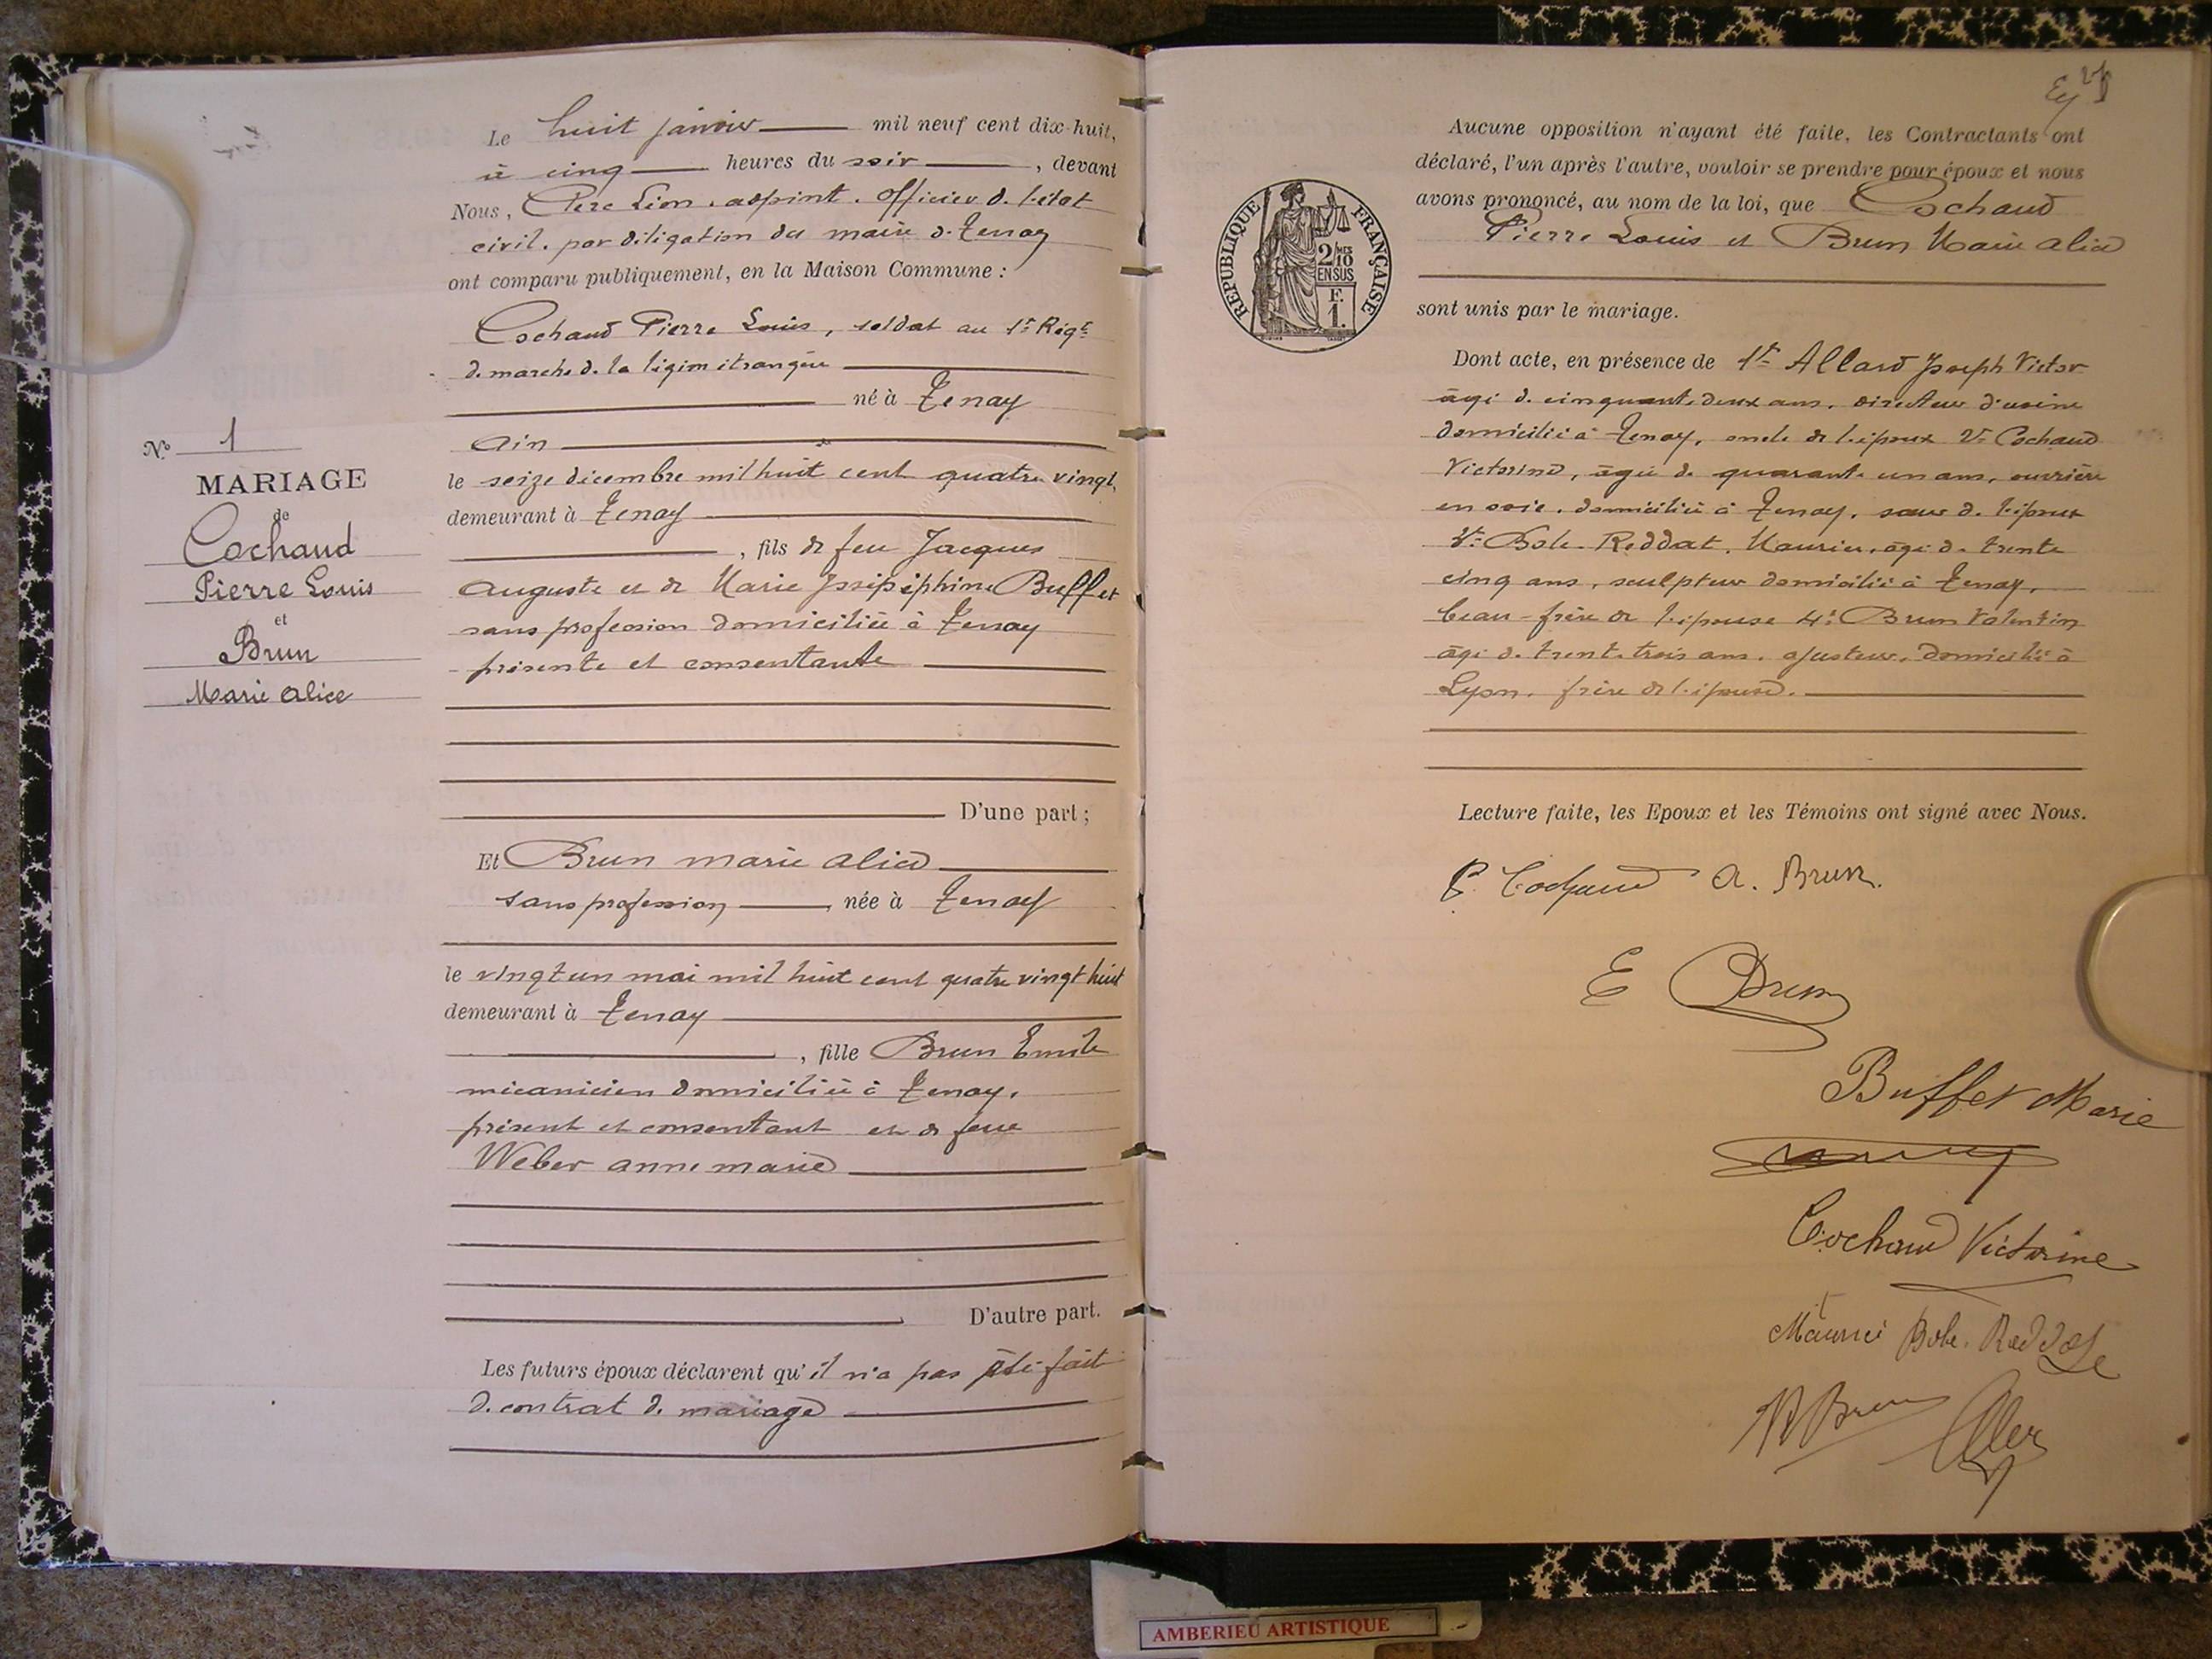 Le huit janvier mil neuf cent dix-huit,
à cinq heures du soir, devant
Nous, Père Léon, adjoint, officier de l'état
civil, par délégation du maire de Tenay
ont comparu publiquement, en la Maison Commune :
Cochaud Pierre Louis, soldat au 1er Régt
de marche de la légion étrangère
né à Tenay
Ain
le seize décembre mil huit cent quatre vingt,
demeurant à Tenay
, fils de feu Jacques
Auguste et de Marie Buffet
sans profession domiciliée à Tenay
présente et consentante
D'une part ;
Et Brun marie alice
sans profession, née à Tenay
le vingt un mai mil huit cent quatre vingt huit
demeurant à Tenay
, fille Brun Emile
mécanicien domicilié à Tenay,
présent et consentant et de feue
Weber anne marie
D'autre part.
Les futurs époux déclarent qu'il n'a pas été fait
de contrat de mariage
N° 1
MARIAGE
de
Cochaud
Pierre Louis
et
Brun
Marie Alice
Aucune opposition n'ayant été faite, les Contractants ont
déclaré, l'un après l'autre, vouloir se prendre pour époux et nous
avons prononcé, au nom de la loi, que Cochaud
Pierre Louis et Brun Marie alice
sont unis par le mariage.
Dont acte, en présence de 1er Allard Joseph Victor
âgé de cinquante deux ans, directeur d'usine
domicilié à Tenay, oncle de l'époux 2e Cochaud
Victorine, âgée de quarante un ans, ouvrière
en soie, domiciliée à Tenay, sœur de l'époux
3e Bole-Reddat, Maurice, âgé de trente
cinq ans, sculpteur domicilié à Tenay,
beau-frère de l'épouse 4e Brun Valentin
âgé de trente trois ans, ajusteur, domicilié à
Lyon, frère de l'épouse.
Lecture faite, les Epoux et les Témoins ont signé avec Nous.
P. Cochaud A. Brun.
E Brun
Buffet Marie
Cochaud Victorine
Maurice Bole-Reddat
V Brun
RÉPUBLIQUE FRANÇAISE
2/10 EN SUS
F. 1.
AMBERIEU ARTISTIQUE